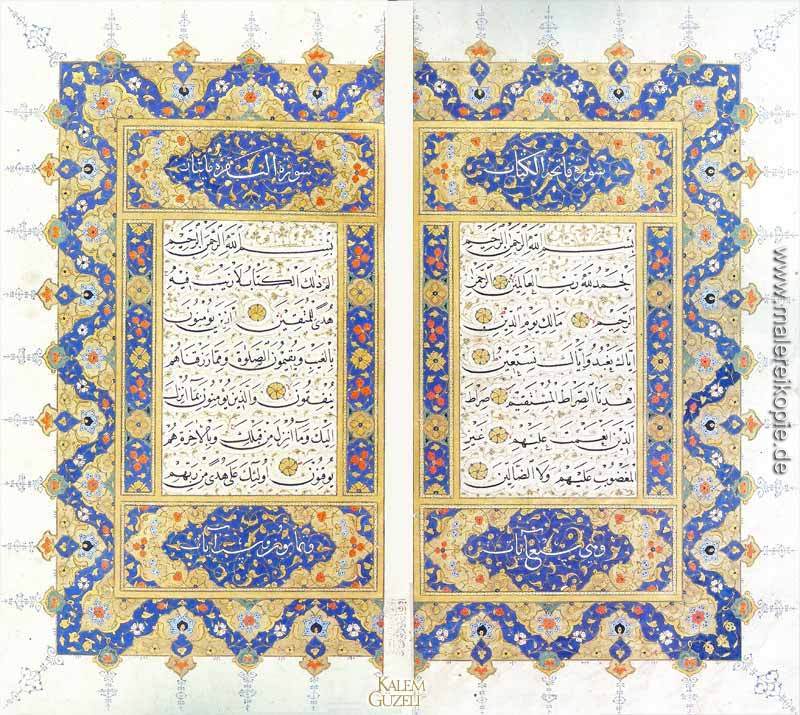 سورة فاتحة الكتاب
بسم الله الرحمن الرحيم
الحمد لله رب العالمين الرحمن
الرحيم مالك يوم الدين
اياك نعبد واياك نستعين
اهدنا الصراط المستقيم صراط
الذين انعمت عليهم غير
المغضوب عليهم ولا الضالين
وهي سبع آيات
سورة البقرة مائتان
بسم الله الرحمن الرحيم
الم ذلك الكتاب لا ريب فيه
هدى للمتقين الذين يؤمنون
بالغيب ويقيمون الصلوة ومما رزقناهم
ينفقون والذين يؤمنون بما انزل
اليك وما انزل من قبلك وبالآخرة هم
يوقنون اولئك على هدى من ربهم
وثمانون وست آيات
www.malereikopie.de
KALEM
GÜZELİ